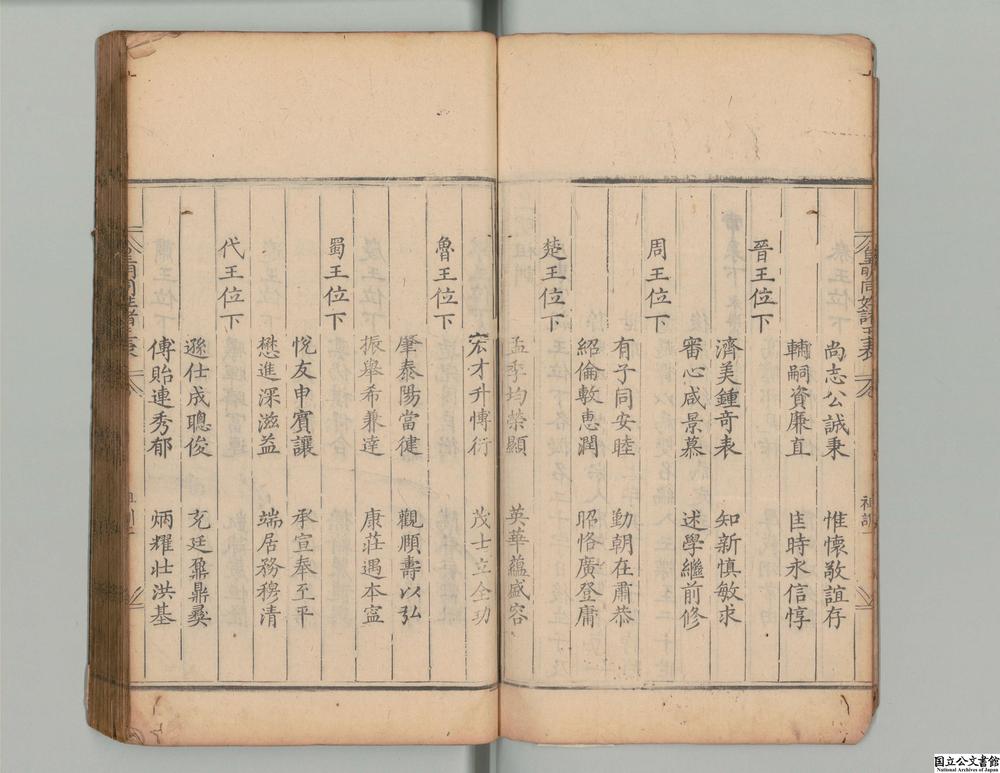 皇明同姓諸王表
尚志公誠秉　惟懷敬誼存
輔嗣資廉直　匡時永信惇
晉王位下
濟美鍾奇表　知新慎敏求
審心咸景慕　述學繼前修
周王位下
有子同安睦　勤朝在肅恭
紹倫敷惠潤　昭恪廣登庸
楚王位下
孟季均榮顯　英華蘊盛容
宏才升愽衍　茂士立全功
魯王位下
肇泰陽當健　觀頤壽以弘
振舉希兼達　康莊遇本寧
蜀王位下
悅友申賓讓　承宣奉至平
懋進深滋益　端居務穆清
代王位下
遜仕成聰俊　充廷鼐鼎彝
傳貽連秀郁　炳耀壯洪基
国立公文書館
National Archives of Japan